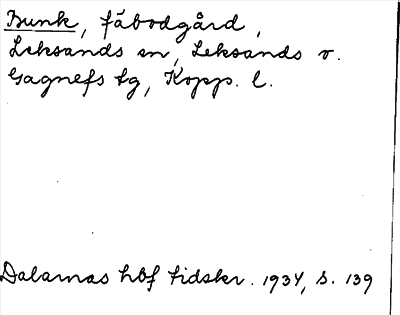 Bunk, fäbodgård,
Leksands sn, Leksands v.
Gagnefs tg, Kopp. l.
Dalarnas hbf tidskr. 1934, s. 139